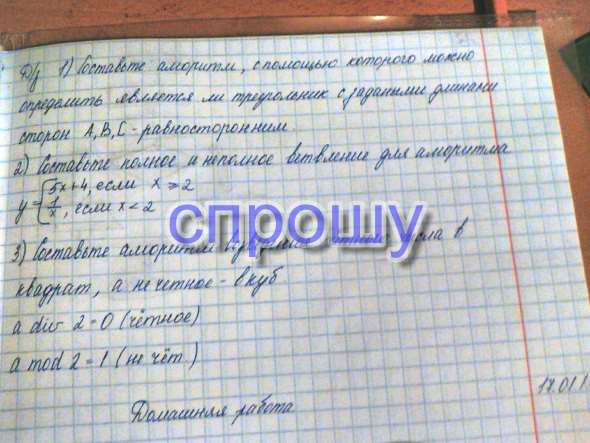 Д/з 1) Составьте алгоритм, с помощью которого можно
определить является ли треугольник с задаными длинами
сторон А, В, С - равносторонним.
2) Составьте полное и неполное ветвление для алгоритма
y = { 5x+4, если x ≥ 2
7/x, если x < 2
спрошу
3) Составьте алгоритм числа в
квадрат, а не четное - в куб
a div 2 = 0 (чётное)
a mod 2 = 1 (не чёт.)
17.01.1
Домашняя работа